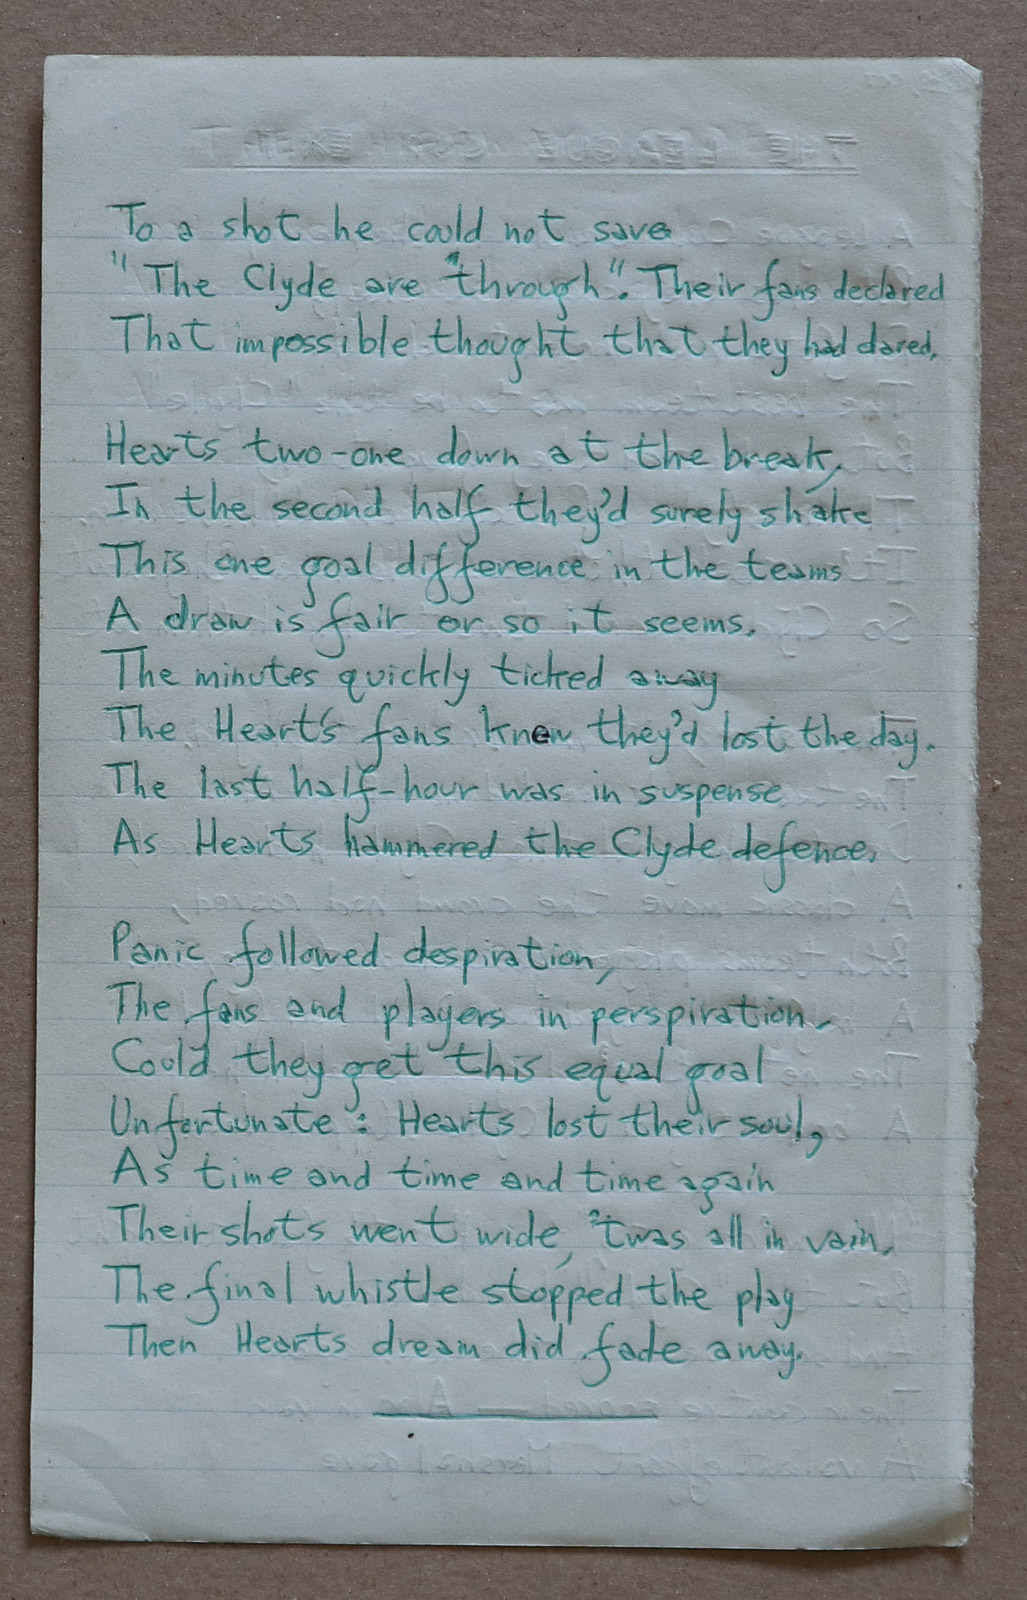 To a shot he could not save
"The Clyde are through". Their fans declared
That impossible thought that they had dared.
Hearts two-one down at the break,
In the second half they'd surely shake
This one goal difference in the teams
A draw is fair or so it seems.
The minutes quickly ticked away
The Heart's fans knew they'd lost the day.
The last half-hour was in suspense
As Hearts hammered the Clyde defence.
Panic followed despiration,
The fans and players in perspiration.
Could they get this equal goal
Unfortunate: Hearts lost their soul,
As time and time and time again
Their shots went wide, 'twas all in vain.
The final whistle stopped the play
Then Hearts dream did fade away.